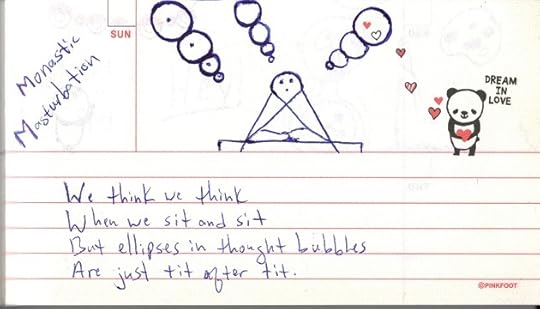 SUN
Monastic
Masturbation
DREAM
IN
LOVE
We think we think
When we sit and sit
But ellipses in thought bubbles
Are just tit after tit.
©PINKFOOT